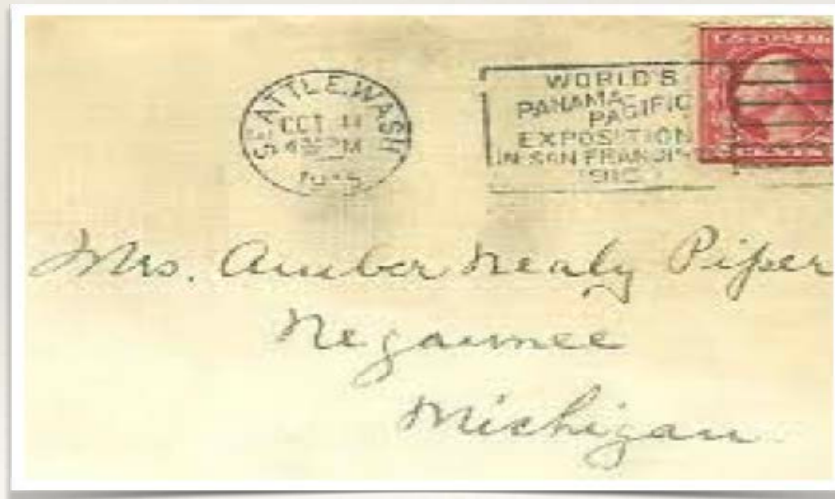 SEATTLE, WASH
OCT 11
PM
1915
WORLD'S
PANAMA-
PACIFIC
EXPOSITION
IN SAN FRANCIS
1915
Mrs. Amber Nealy Piper
Negaunee
Michigan